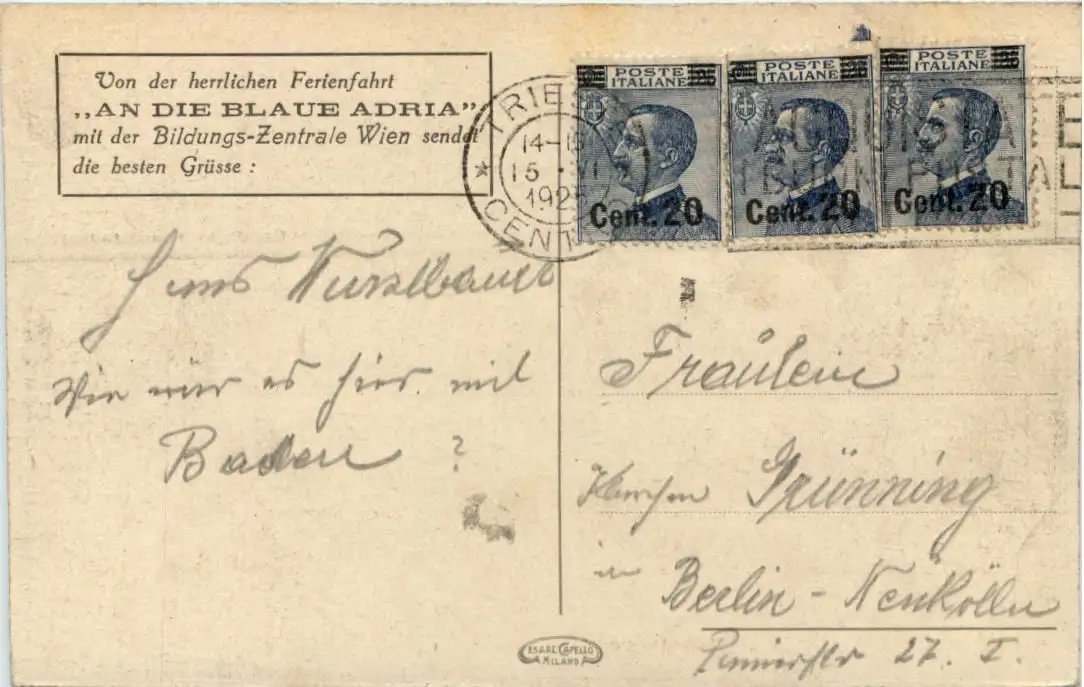 Von der herrlichen Ferienfahrt
„AN DIE BLAUE ADRIA”
mit der Bildungs-Zentrale Wien sendet
die besten Grüsse :
POSTE ITALIANE
Cent. 20
POSTE ITALIANE
Cent. 20
POSTE ITALIANE
Cent. 20
TRIESTE
14-15
15 VI
CENTRO
Hans Wurzlbauer
Wie wär es hier mit
Baden ?
Fräulein
Grünning
in
Berlin - Neukölln
27. I.
CAPELLO
MILANO